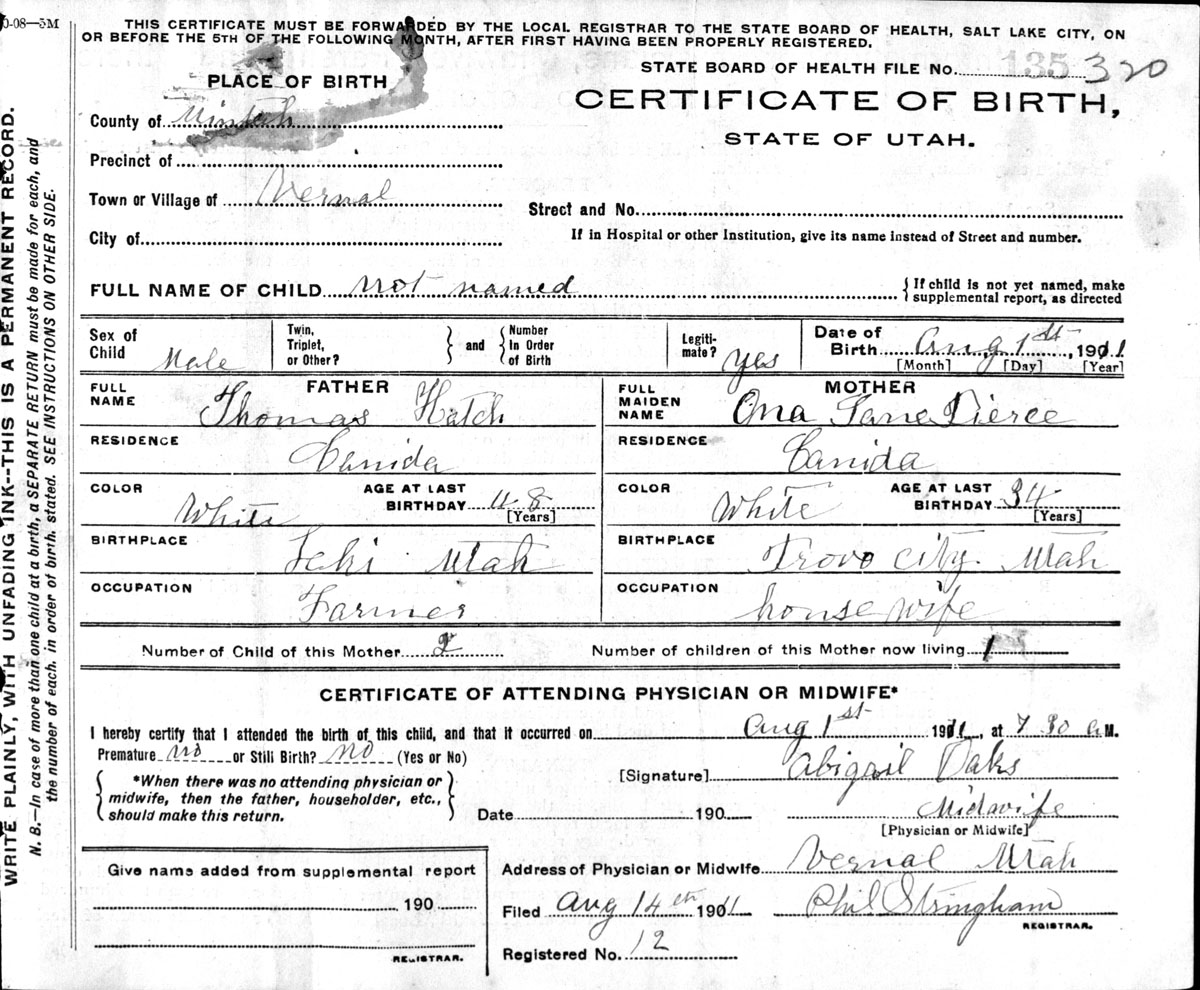 0-08—5M
THIS CERTIFICATE MUST BE FORWARDED BY THE LOCAL REGISTRAR TO THE STATE BOARD OF HEALTH, SALT LAKE CITY, ON
OR BEFORE THE 5TH OF THE FOLLOWING MONTH, AFTER FIRST HAVING BEEN PROPERLY REGISTERED.
STATE BOARD OF HEALTH FILE No. 135 320
PLACE OF BIRTH
CERTIFICATE OF BIRTH,
STATE OF UTAH.
County of Uintah
Precinct of
Town or Village of Vernal
Street and No.
City of
If in Hospital or other Institution, give its name instead of Street and number.
FULL NAME OF CHILD not named
{ If child is not yet named, make supplemental report, as directed
Sex of Child Male
Twin, Triplet, or Other? } and { Number In Order of Birth
Legiti- mate? yes
Date of Birth Aug 1st, 1911
[Month] [Day] [Year]
FATHER
FULL NAME Thomas Hatch
MOTHER
FULL MAIDEN NAME Ona Jane Pierce
RESIDENCE Canida
RESIDENCE Canida
COLOR White AGE AT LAST BIRTHDAY 48 [Years]
COLOR White AGE AT LAST BIRTHDAY 34 [Years]
BIRTHPLACE Lehi Utah
BIRTHPLACE Provo city. Utah
OCCUPATION Farmer
OCCUPATION house wife
Number of Child of this Mother 2
Number of children of this Mother now living 1
CERTIFICATE OF ATTENDING PHYSICIAN OR MIDWIFE*
I hereby certify that I attended the birth of this child, and that it occurred on Aug 1st 1911, at 7 30 a M.
Premature no or Still Birth? no (Yes or No)
{ *When there was no attending physician or midwife, then the father, householder, etc., should make this return. }
[Signature] Abigail Oaks
Date 190 Midwife
[Physician or Midwife]
Give name added from supplemental report
190
REGISTRAR.
Address of Physician or Midwife Vernal Utah
Filed Aug 14th 1911 Phil Stringham
REGISTRAR.
Registered No. 12
WRITE PLAINLY, WITH UNFADING INK--THIS IS A PERMANENT RECORD.
N. B.—In case of more than one child at a birth, a SEPARATE RETURN must be made for each, and
the number of each, in order of birth, stated. SEE INSTRUCTIONS ON OTHER SIDE.